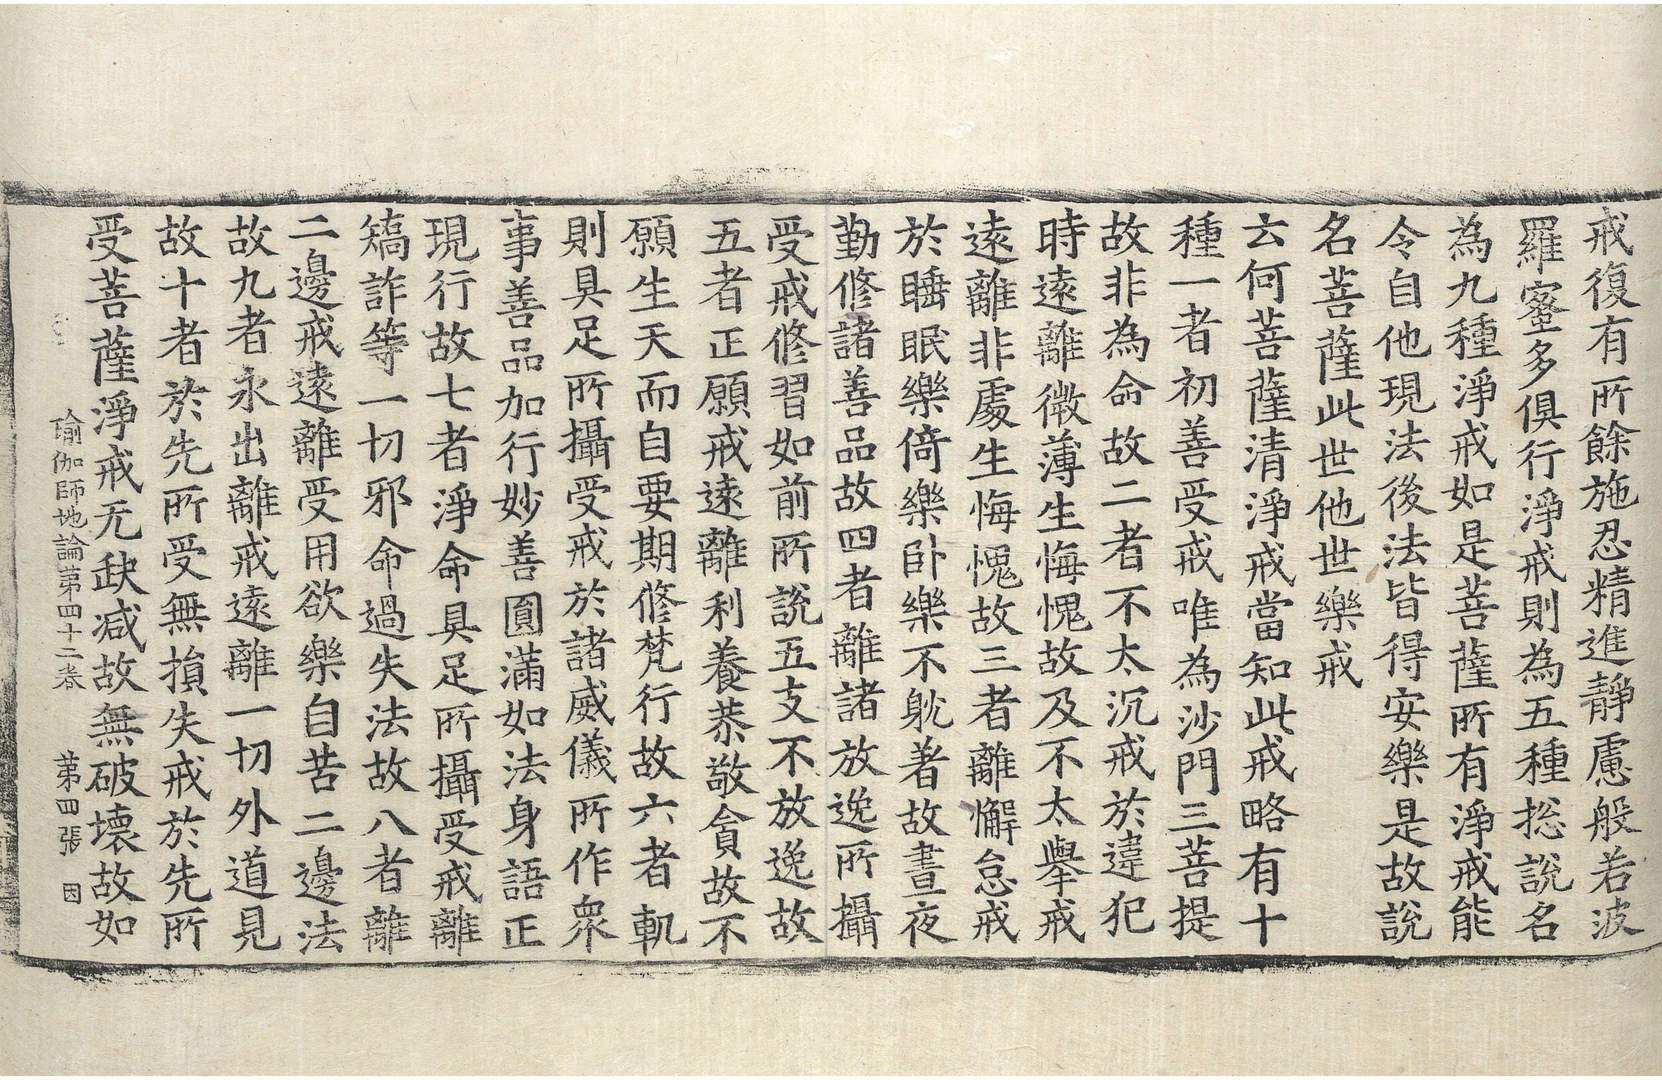 戒復有所餘施忍精進靜慮般若波
羅蜜多俱行淨戒則為五種捴說名
為九種淨戒如是菩薩所有淨戒能
令自他現法後法皆得安樂是故說
名菩薩此世他世樂戒
云何菩薩清淨戒當知此戒略有十
種一者初善受戒唯為沙門三菩提
故非為命故二者不太沉戒於違犯
時遠離微薄生悔愧故及不太舉戒
遠離非處生悔愧故三者離懈怠戒
於睡眠樂倚樂卧樂不躭著故晝夜
勤修諸善品故四者離諸放逸所攝
受戒修習如前所說五支不放逸故
五者正願戒遠離利養恭敬貪故不
願生天而自要期修梵行故六者軌
則具足所攝受戒於諸威儀所作衆
事善品加行妙善圓滿如法身語正
現行故七者淨命具足所攝受戒離
矯詐等一切邪命過失法故八者離
二邊戒遠離受用欲樂自苦二邊法
故九者永出離戒遠離一切外道見
故十者於先所受無損失戒於先所
受菩薩淨戒无缺減故無破壞故如
瑜伽師地論第四十二卷 第四張 因